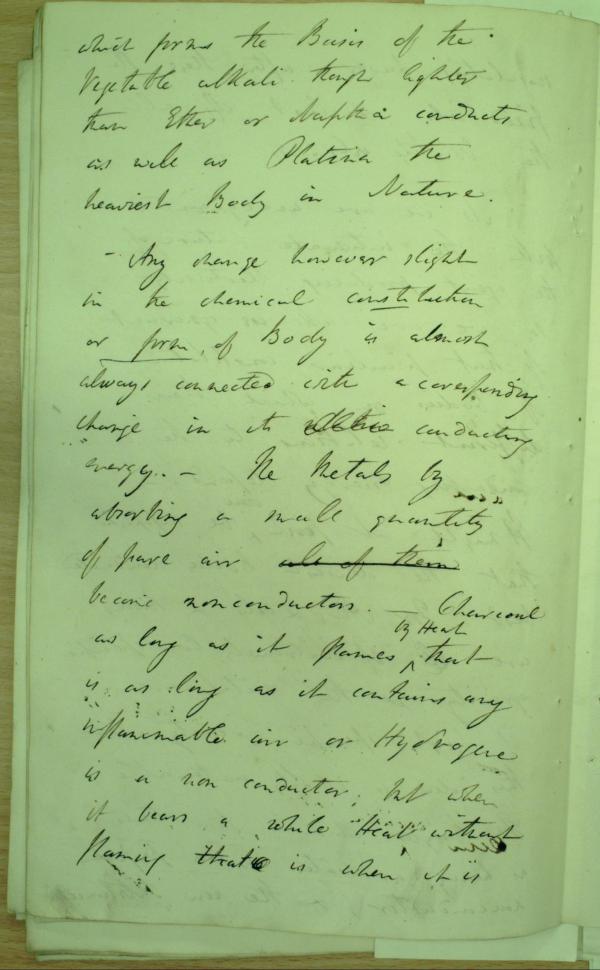 which forms the Basis of the
Vegetable alkali though lighter
than Ether or Naptha conducts
as well as Platina the
heaviest Body in Nature.
- Any change however slight
in the chemical constitution
or form, of Body is almost
always connected with a coresponding
change in its conducting
energy. - The Metals by
absorbing a small quantity
of pure air all of them
become nonconductors. - Charcoal
by Heat
as long as it flames ^ that
is as long as it contains any
inflammable air or Hydrogene
is a non conductor; but when
it bears a white Heat without
flaming that is when it is